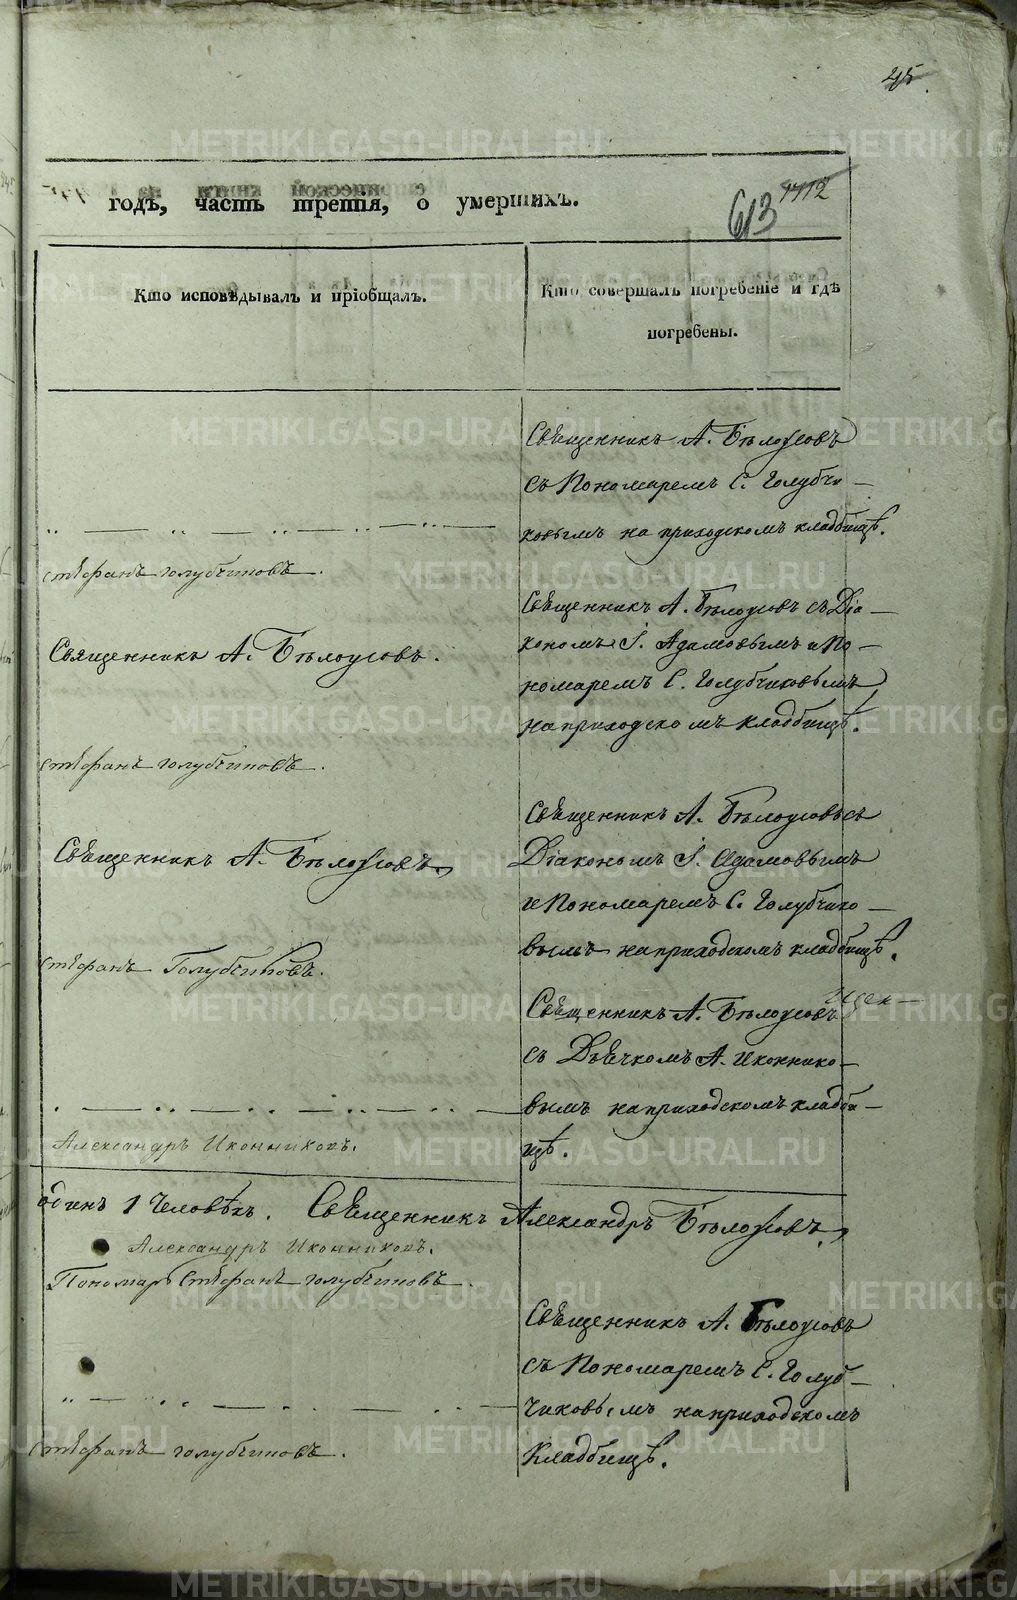 45.
годъ, часть третія, о умершихъ.
613 1112
Кто исповѣдывалъ и пріобщалъ.
Кто совершалъ погребеніе и гдѣ
погребены.
Священникъ А. Бѣлоусовъ
съ Пономаремъ С. Голубчи—
ковымъ на приходскомъ кладбищѣ.
Стефанъ Голубчиковъ.
Священникъ А. Бѣлоусовъ.
Священникъ А. Бѣлоусовъ съ Діа—
кономъ І. Адамовымъ и По—
номаремъ С. Голубчиковымъ
на приходскомъ кладбищѣ.
Стефанъ Голубчиковъ.
Священникъ А. Бѣлоусовъ.
Священникъ А. Бѣлоусовъ съ
Діакономъ І. Адамовымъ
и Пономаремъ С. Голубчико—
вымъ на приходскомъ кладбищѣ.
Стефанъ Голубчиковъ.
Священникъ А. Бѣлоусовъ
съ Дьячкомъ А. Иконнико—
вымъ на приходскомъ кладби—
щѣ.
Александръ Иконниковъ.
одинъ 1 Человѣкъ. Священникъ Александръ Бѣлоусовъ.
Александръ Иконниковъ.
Пономарь Стефанъ Голубчиковъ.
Священникъ А. Бѣлоусовъ
съ Пономаремъ С. Голуб—
чиковымъ на приходскомъ
Кладбищѣ.
Стефанъ Голубчиковъ.
METRIKI.GASO-URAL.RU